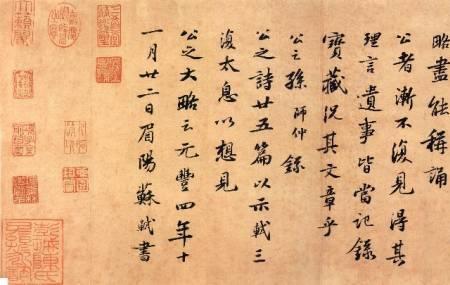 略盡能稱誦
公者漸不復見得其
理言遺事皆當記錄
寶藏況其文章乎
公之孫師仲錄
公之詩廿五篇以示軾三
復太息以想見
公之大略云元豐四年十
一月廿二日眉陽蘇軾書